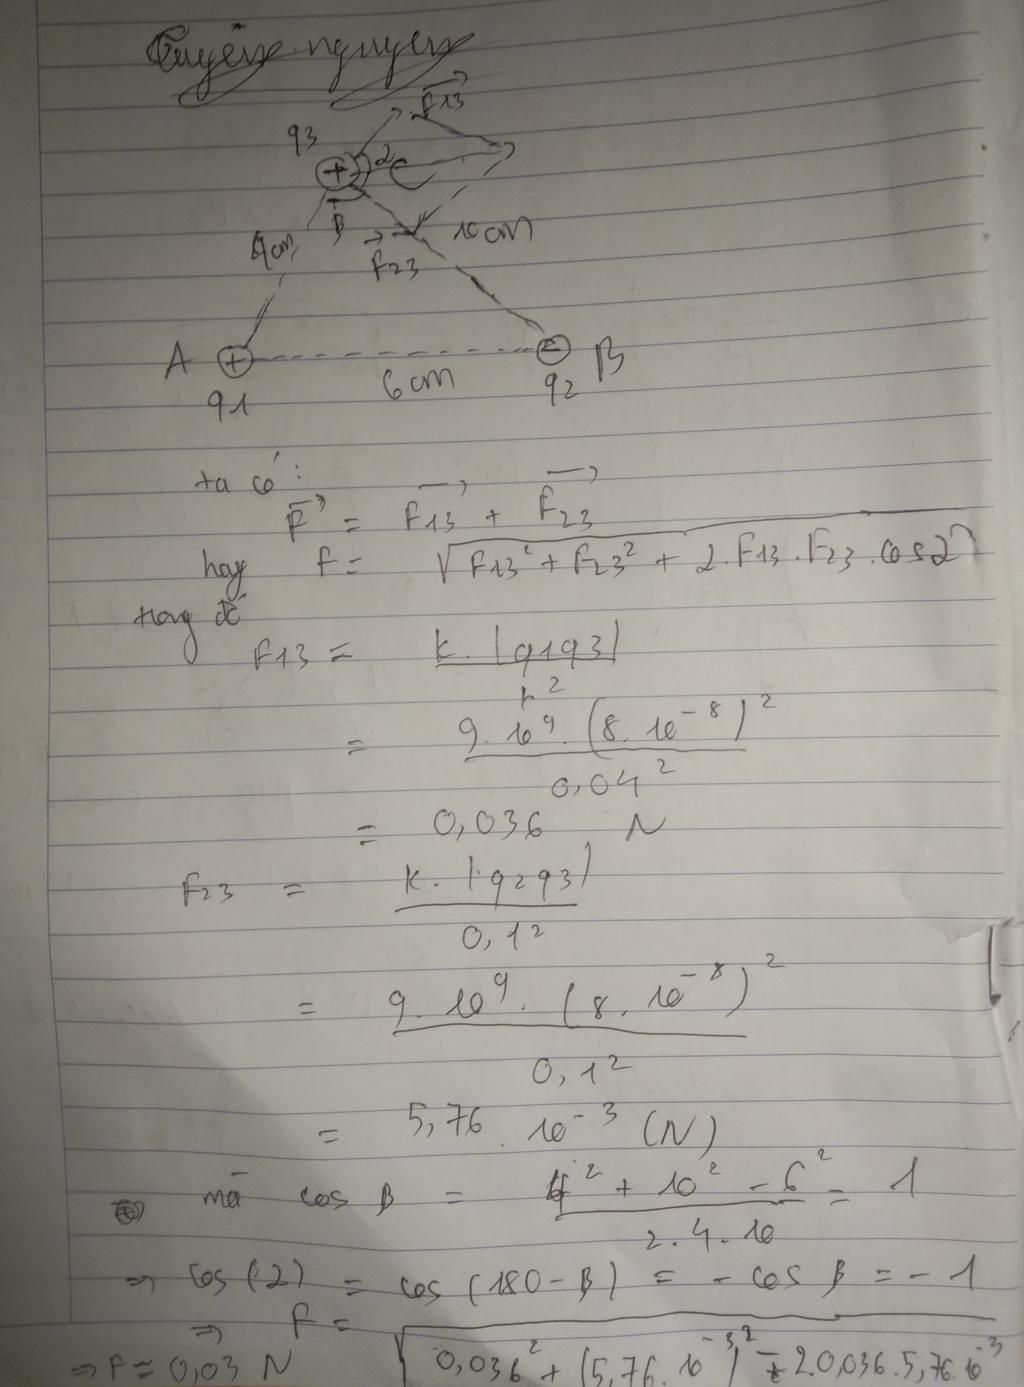 Tuyên nguyên
F13
q3
2
β
4cm
F23
10cm
A
+
-
B
6cm
q1
q2
ta có:
F = F13 + F23
hay F = √F13² + F23² + 2.F13.F23.cos2
trong đó
F13 = k.|q1q3| / r²
= 9.10⁹.(8.10⁻⁸)² / 0,04²
= 0,036 N
F23 = k.|q2q3| / 0,1²
= 9.10⁹.(8.10⁻⁸)² / 0,1²
= 5,76.10⁻³ (N)
mà cos β = 4² + 10² - 6² / 2.4.10 = 1
⇒ cos(2) = cos(180-β) = -cos β = -1
⇒ F = √0,036² + (5,76.10⁻³)² - 2.0,036.5,76.10⁻³
⇒ F = 0,03 N